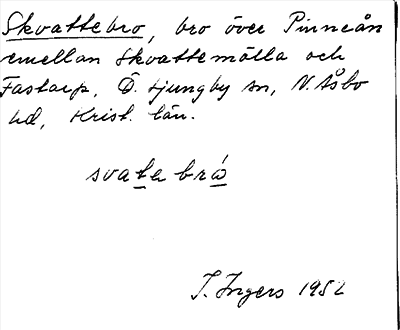 Skvattebro, bro över Pinneån
emellan Skvattemölla och
Fastarp, Ö. Ljungby sn, N. Åsbo
hd, Krist. län.
svate brω
I. Ingers 1952